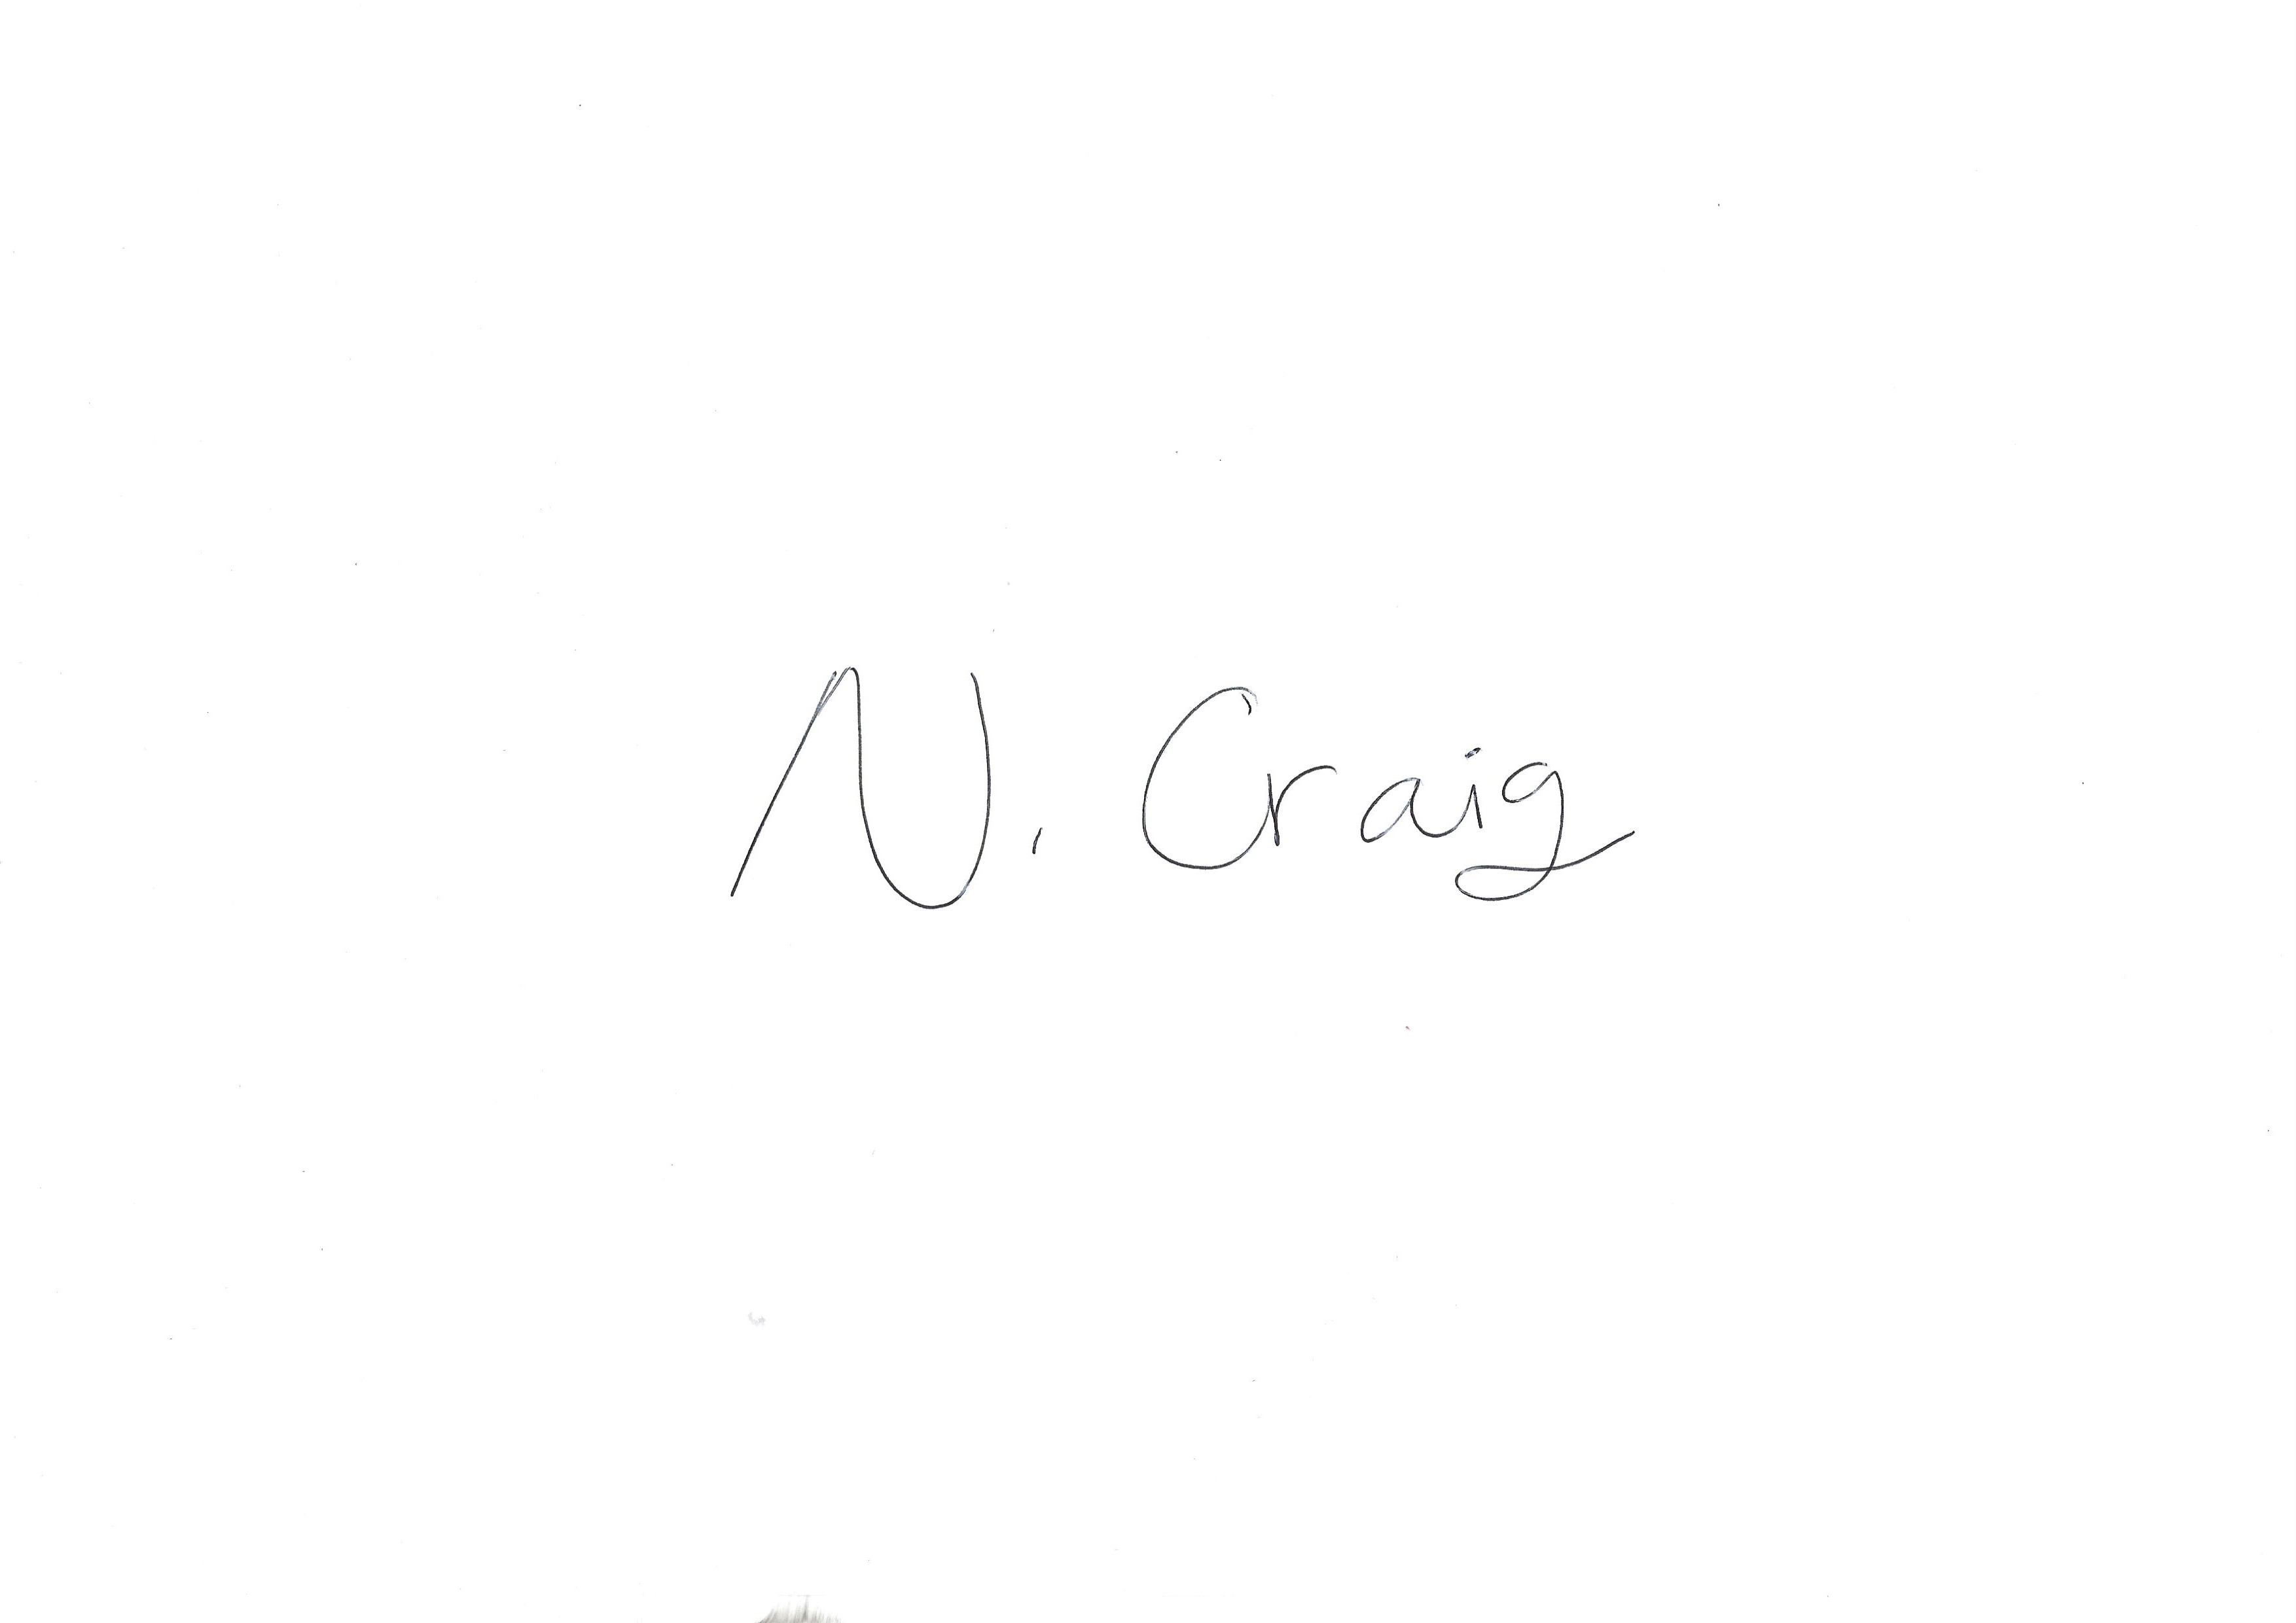 N. Craig